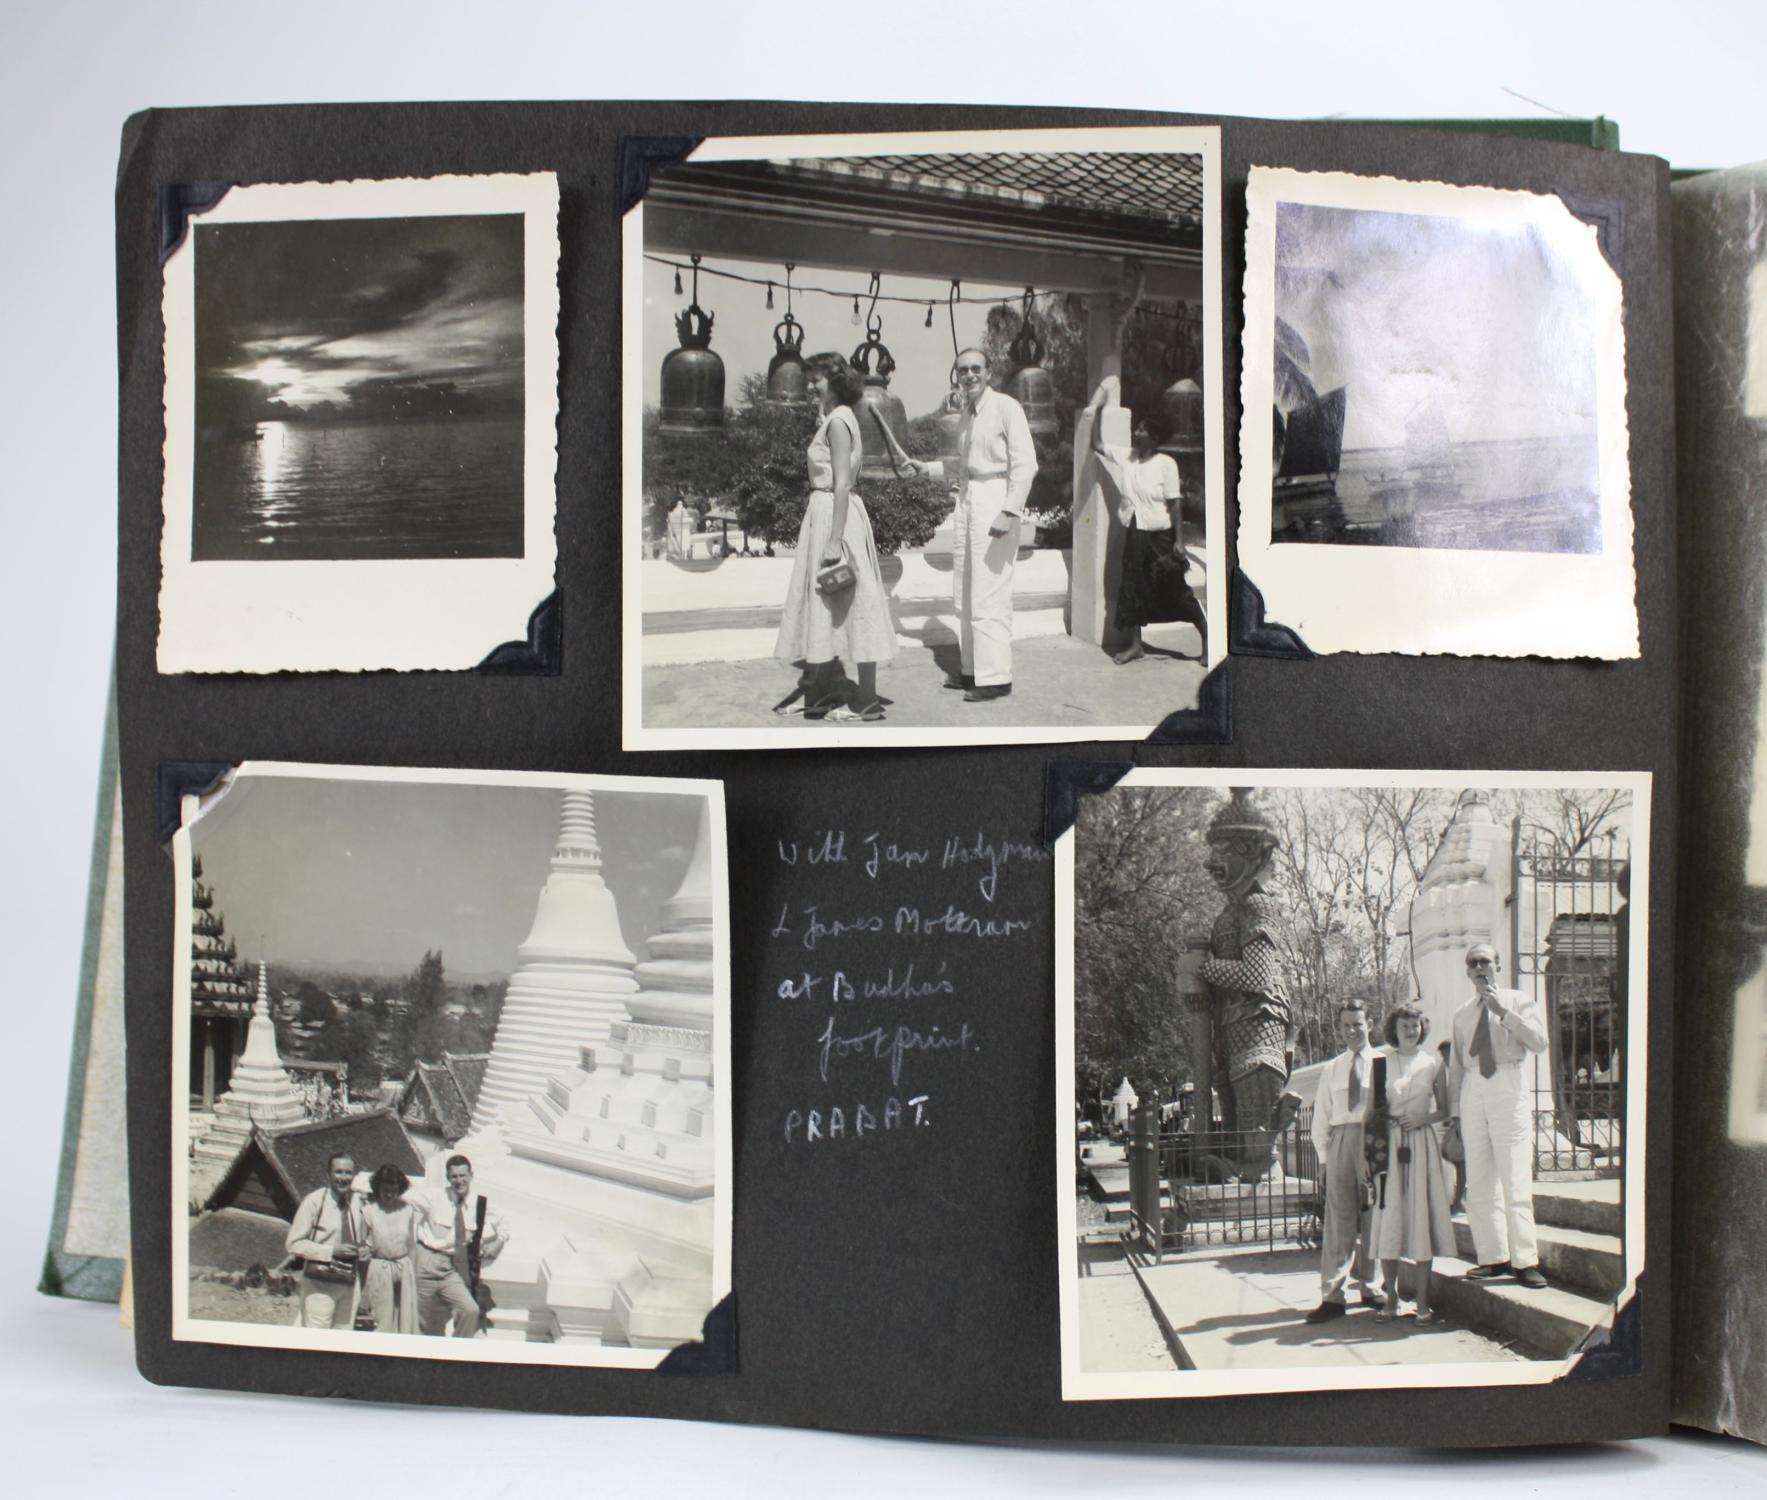 With Jan Hodgman
& James Mottram
at Budha's
footprint.
PRABAT.